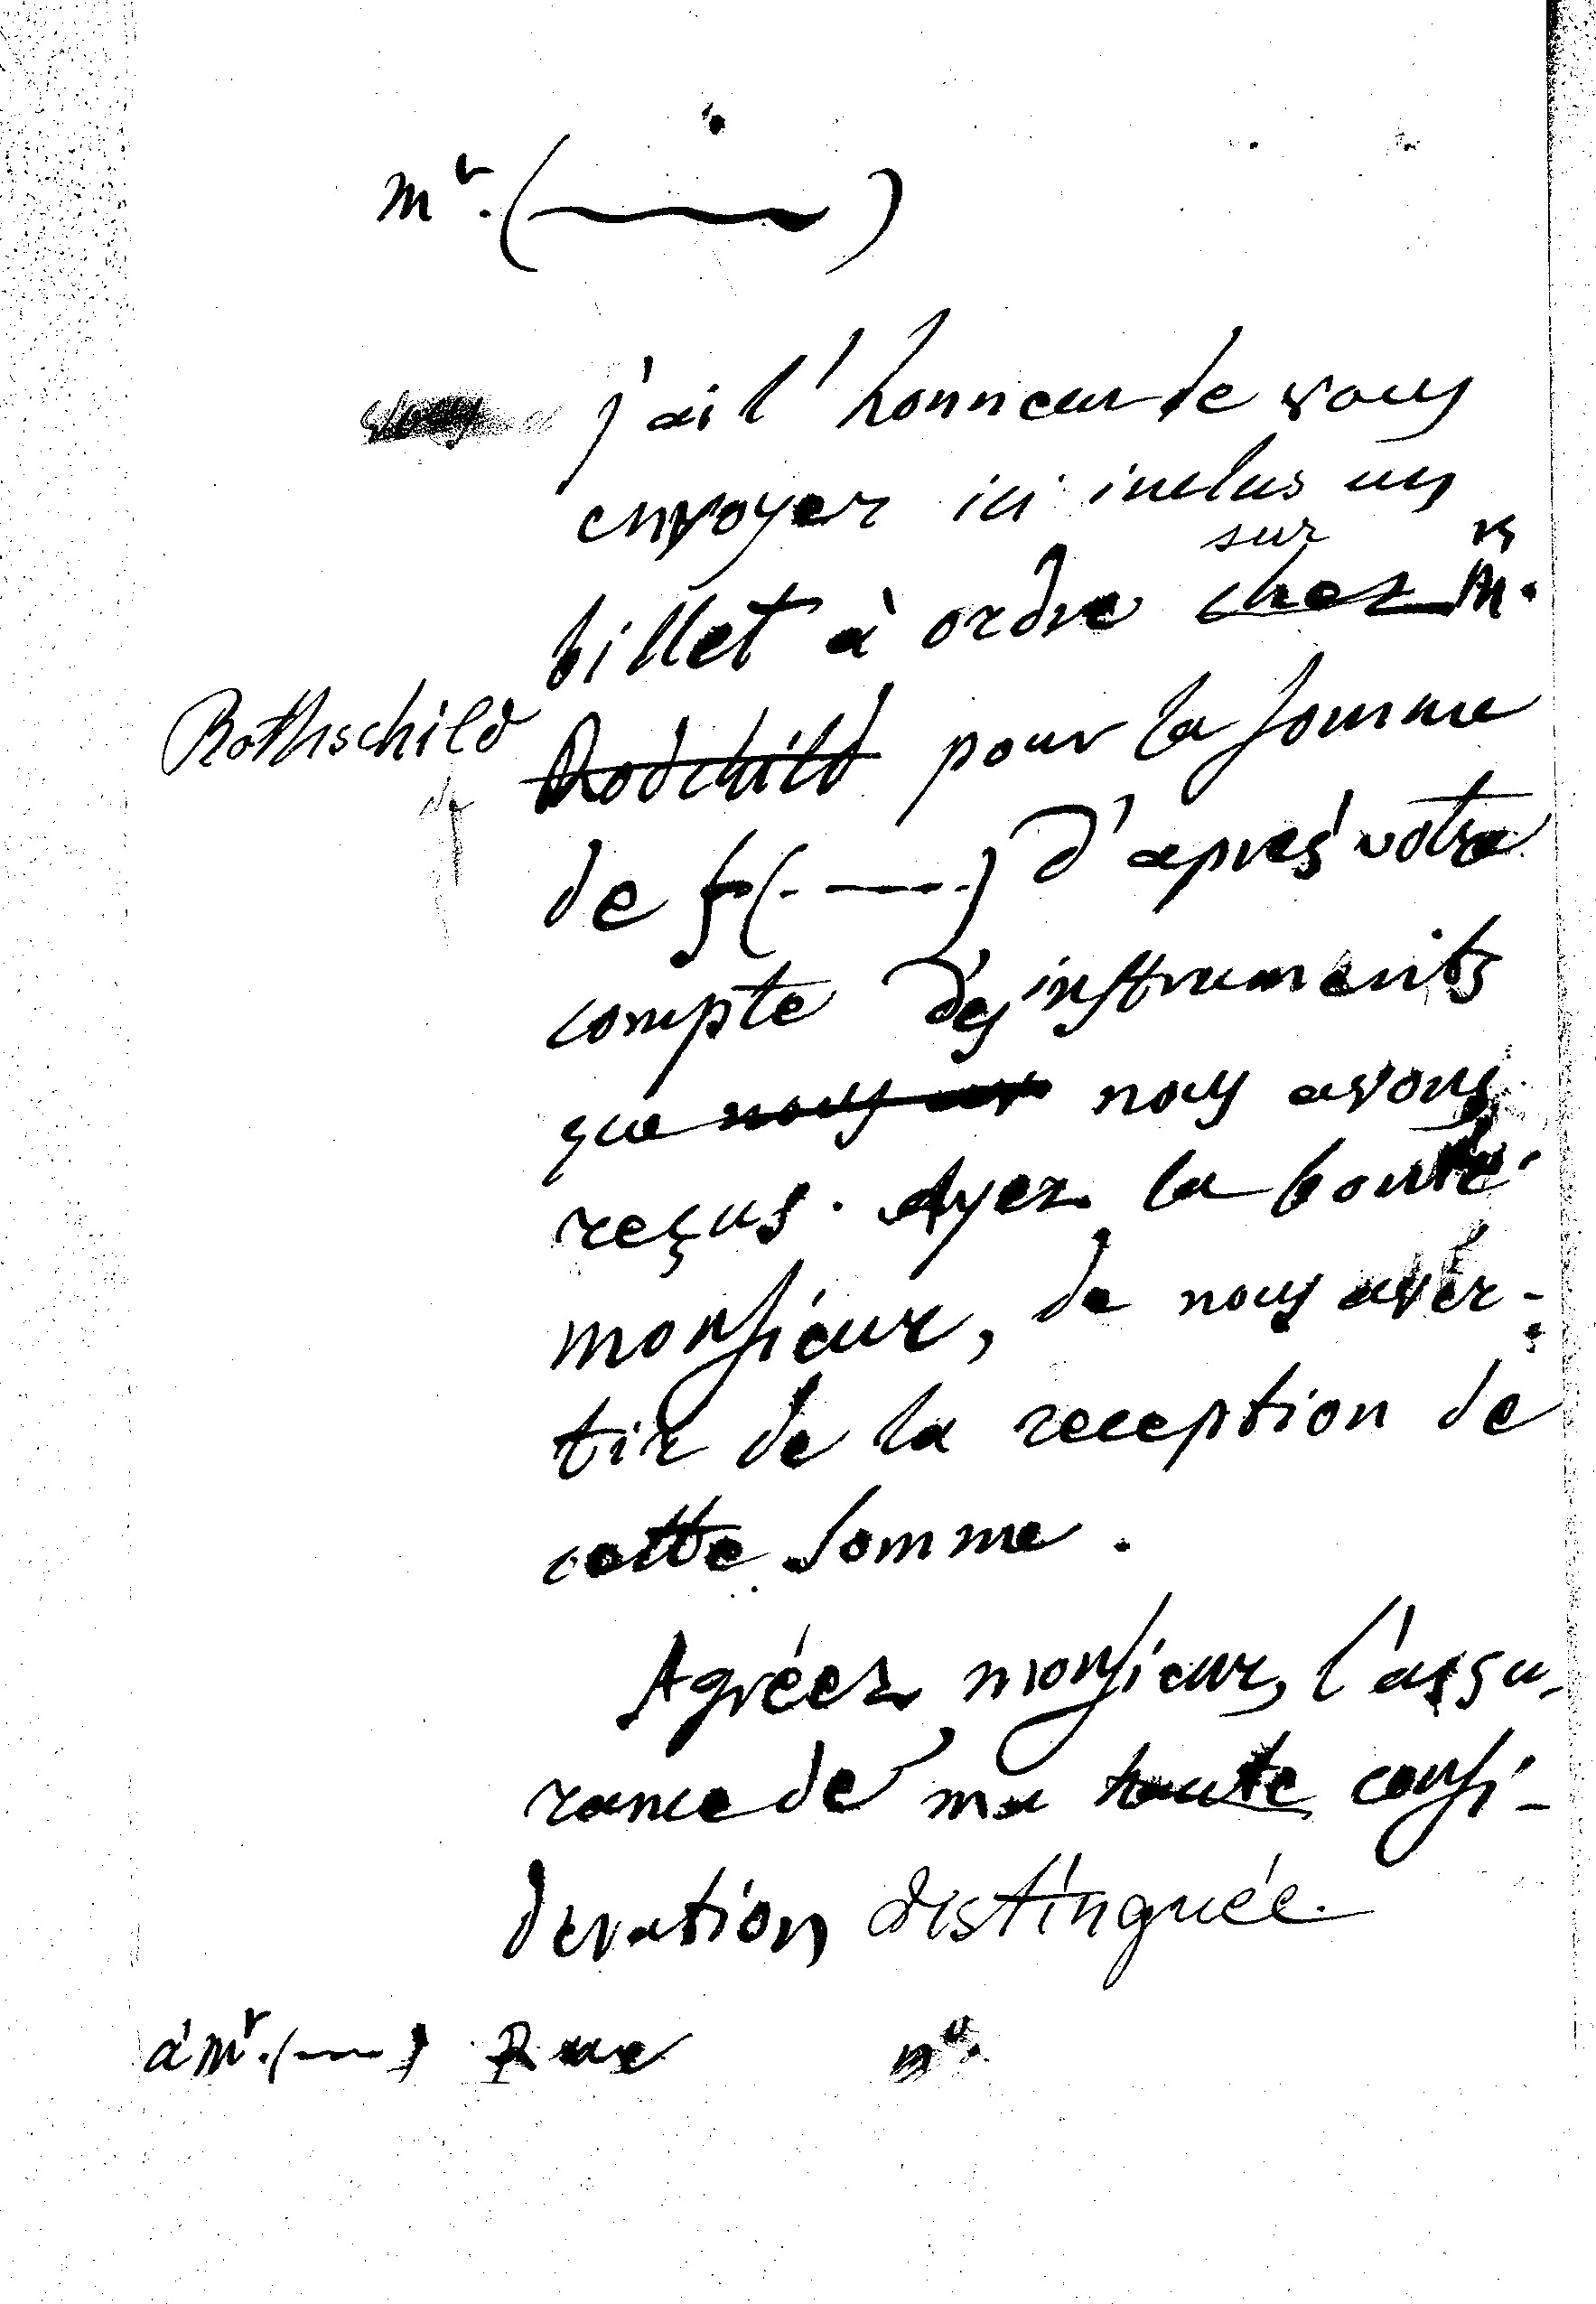 Mr. (———)
j'ai l'honneur de vous
envoyer ici inclus un
sur
billet à ordre chez Mrs.
Rothschild Rodchild pour la somme
de
de f (- —— -) d'aprés votre
compte des instruments
que nous av nous avons
reçus. Ayez la bonté
monsieur, de nous aver-
tir de la reception de
cette somme.
Agréez monsieur, l'assu-
rance de ma haute consi-
deration distinguée.
à Mr. (——) Rue no.